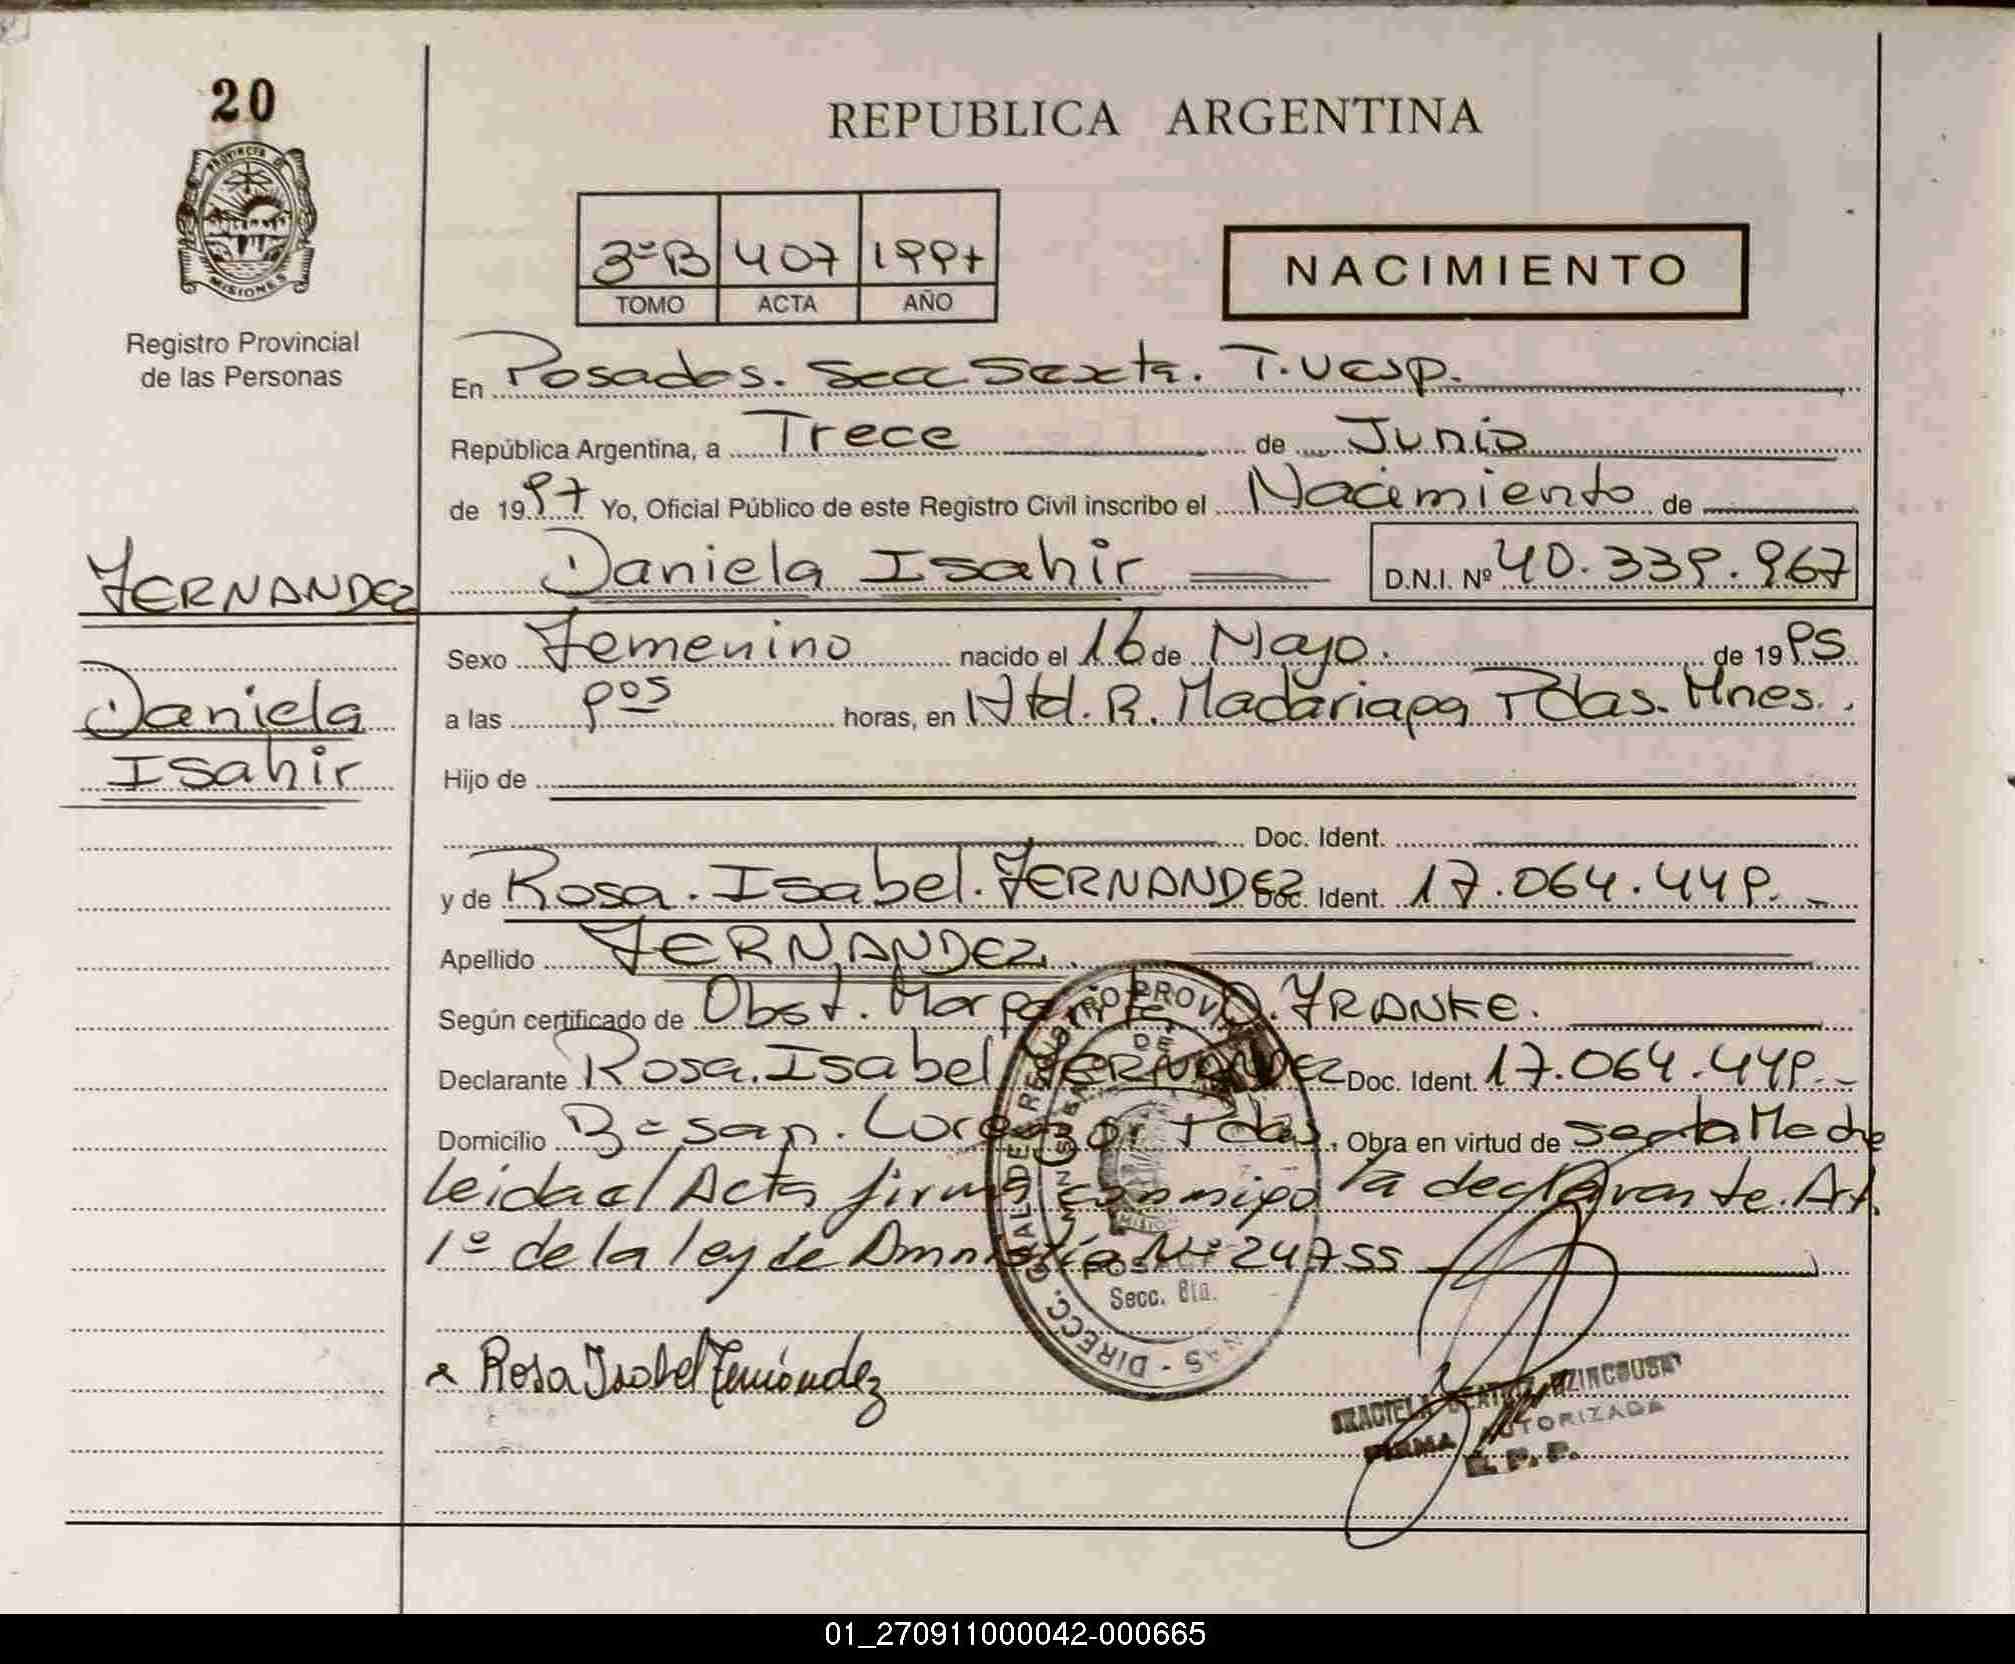 20
REPUBLICA ARGENTINA
PROVINCIA DE
MISIONES
Registro Provincial
de las Personas
3º B 407 1997
TOMO ACTA AÑO
NACIMIENTO
En Posadas. Secc Sexta. T.
República Argentina, a Trece de Junio
de 1997 Yo, Oficial Público de este Registro Civil inscribo el Nacimiento de
Daniela Isahir D.N.I. Nº 40.339.967
FERNANDEZ
Daniela
Isahir
Sexo Femenino nacido el 16 de Mayo. de 1995
a las 9 05 horas, en Htal. R. Madariaga Pdas. Mnes.
Hijo de
Doc. Ident.
y de Rosa. Isabel. FERNANDEZ Doc. Ident. 17.064.449.-
Apellido FERNANDEZ.
Según certificado de Obst. Margarita O. FRANKE.
Declarante Rosa. Isabel FERNANDEZ Doc. Ident. 17.064.449.-
Domicilio Bº San. Lorenzo Pdas. Obra en virtud de Madre
leida el Acta firma conmigo la declarante. Art.
1º de la ley de Amnistía Nº 24755
DIRECC. GRAL DE REGISTRO PROVINCIAL DE LAS PERSONAS
Secc. 6ta.
Rosa Isabel Fernández
GRACIELA BEATRIZ
FIRMA AUTORIZADA
R. P. P.
01_270911000042-000665